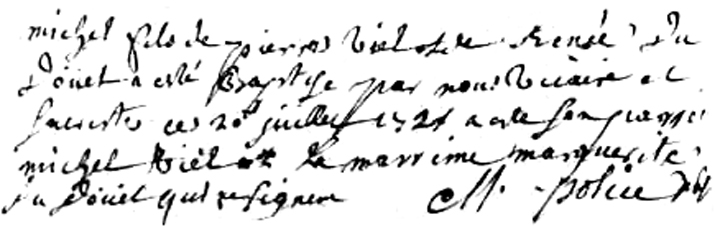 michel fils de pierre Viel et de Renée du
Douet a esté Baptise par nous Vicaire et
ces 20e juillet a esté son parrain
michel Viel et la marrinne marguerite
du Douet qui se signere M. police